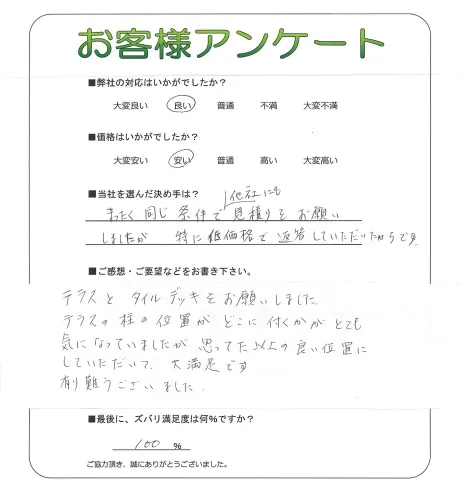 お客様アンケート
■弊社の対応はいかがでしたか？
大変良い 良い 普通 不満 大変不満
■価格はいかがでしたか？
大変安い 安い 普通 高い 大変高い
■当社を選んだ決め手は？
他社にも
まったく同じ条件で見積りをお願い
しましたが 特に低価格で返答していただいたからです
■ご感想・ご要望などをお書き下さい。
テラスとタイルデッキをお願いしました。
テラスの柱の位置がどこに付くかがとても
気になっていましたが思ってた以上の良い位置に
していただいて、大満足です
有難うございました。
■最後に、ズバリ満足度は何%ですか？
100 %
ご協力頂き、誠にありがとうございました。